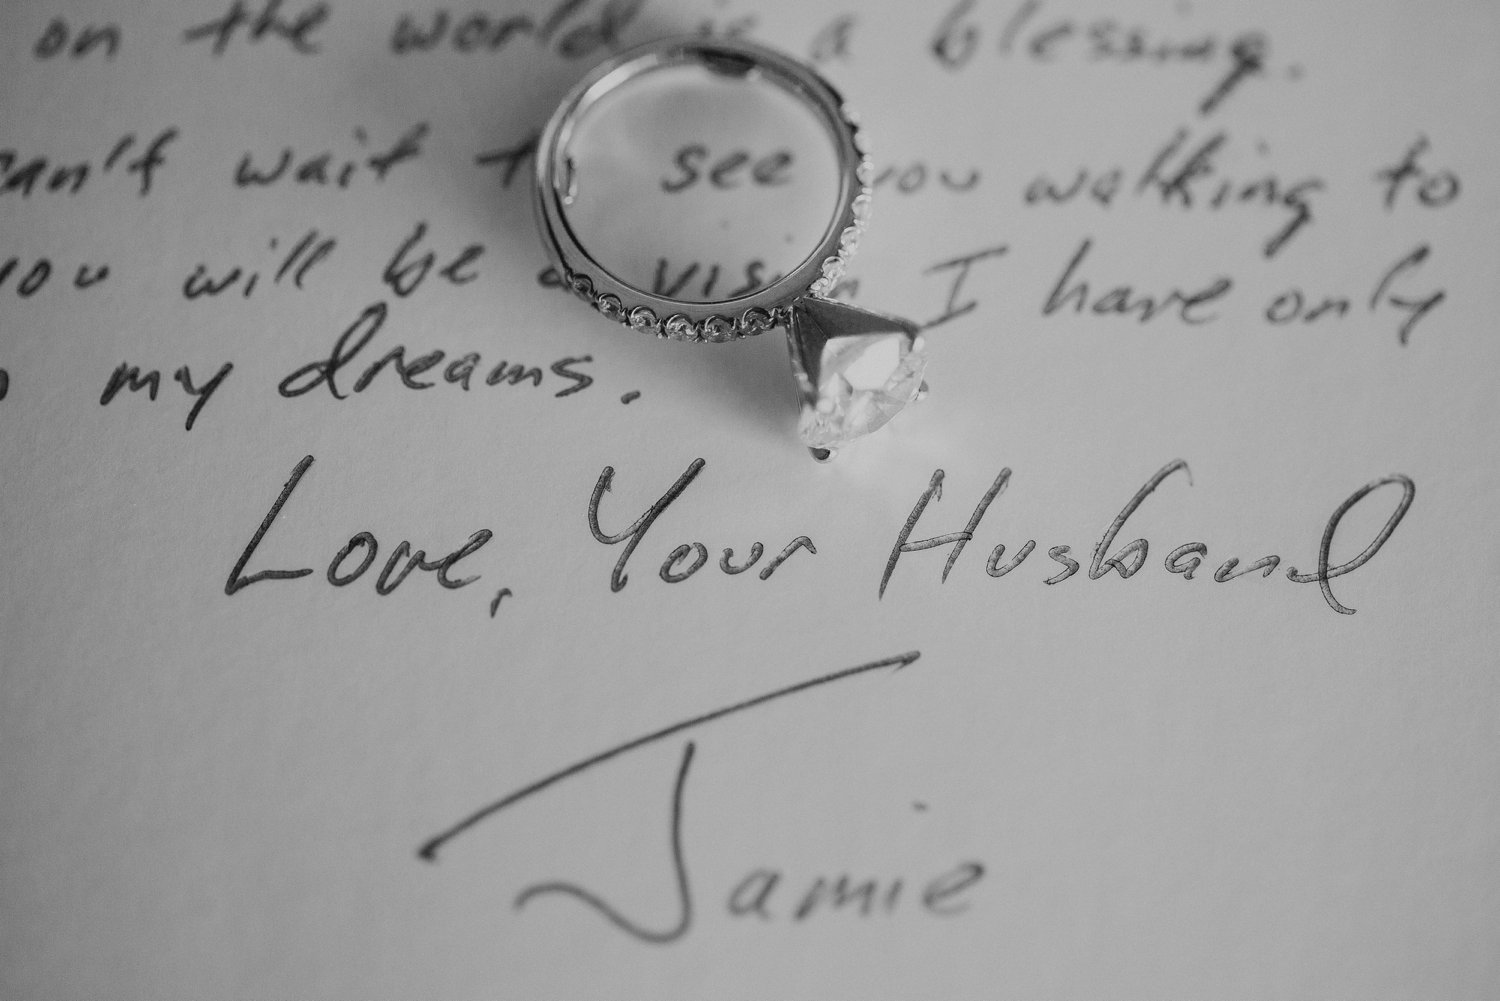 on the world is a blessing.
can't wait to see you walking to
you will be a vision I have only
my dreams.
Love, Your Husband
Jamie